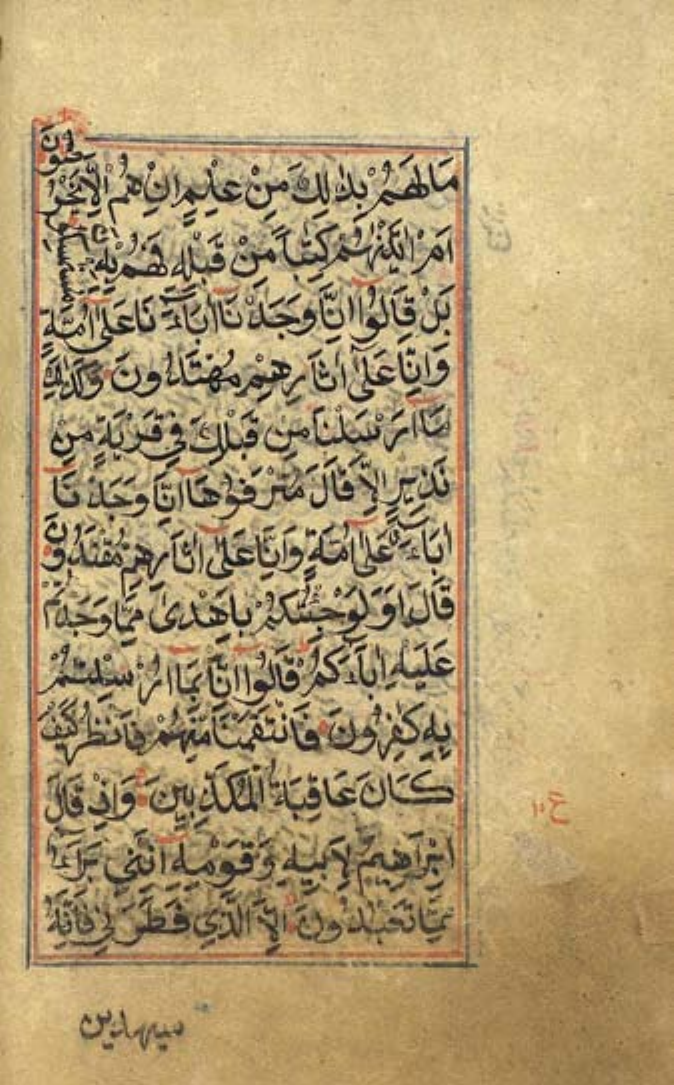 مَا لَهُمْ بِذٰلِكَ مِنْ عِلْمٍ اِنْ هُمْ اِلَّا يَخْرُ
صُوْنَ
اَمْ اٰتَيْنٰهُمْ كِتٰبًا مِنْ قَبْلِهٖ فَهُمْ بِهٖ
مُسْتَمْسِكُوْنَ
بَلْ قَالُوْا اِنَّا وَجَدْنَا اٰبَاۤءَنَا عَلٰى اُمَّةٍ
وَاِنَّا عَلٰى اٰثَارِهِمْ مُهْتَدُوْنَ وَكَذٰلِكَ
مَا اَرْسَلْنَا مِنْ قَبْلِكَ فِيْ قَرْيَةٍ مِنْ
نَذِيْرٍ اِلَّا قَالَ مُتْرَفُوْهَا اِنَّا وَجَدْنَا
اٰبَاۤءَنَا عَلٰى اُمَّةٍ وَاِنَّا عَلٰى اٰثَارِهِمْ مُقْتَدُوْنَ
قَالَ اَوَلَوْ جِئْتُكُمْ بِاَهْدٰى مِمَّا وَجَدْتُمْ
عَلَيْهِ اٰبَاۤءَكُمْ قَالُوْا اِنَّا بِمَا اُرْسِلْتُمْ
بِهٖ كٰفِرُوْنَ فَانْتَقَمْنَا مِنْهُمْ فَانْظُرْ كَيْفَ
كَانَ عَاقِبَةُ الْمُكَذِّبِيْنَ وَاِذْ قَالَ
اِبْرَاهِيْمُ لِاَبِيْهِ وَقَوْمِهٖ اِنَّنِيْ بَرَاۤءٌ
مِمَّا تَعْبُدُوْنَ اِلَّا الَّذِيْ فَطَرَنِيْ فَاِنَّهٗ
سيهدين